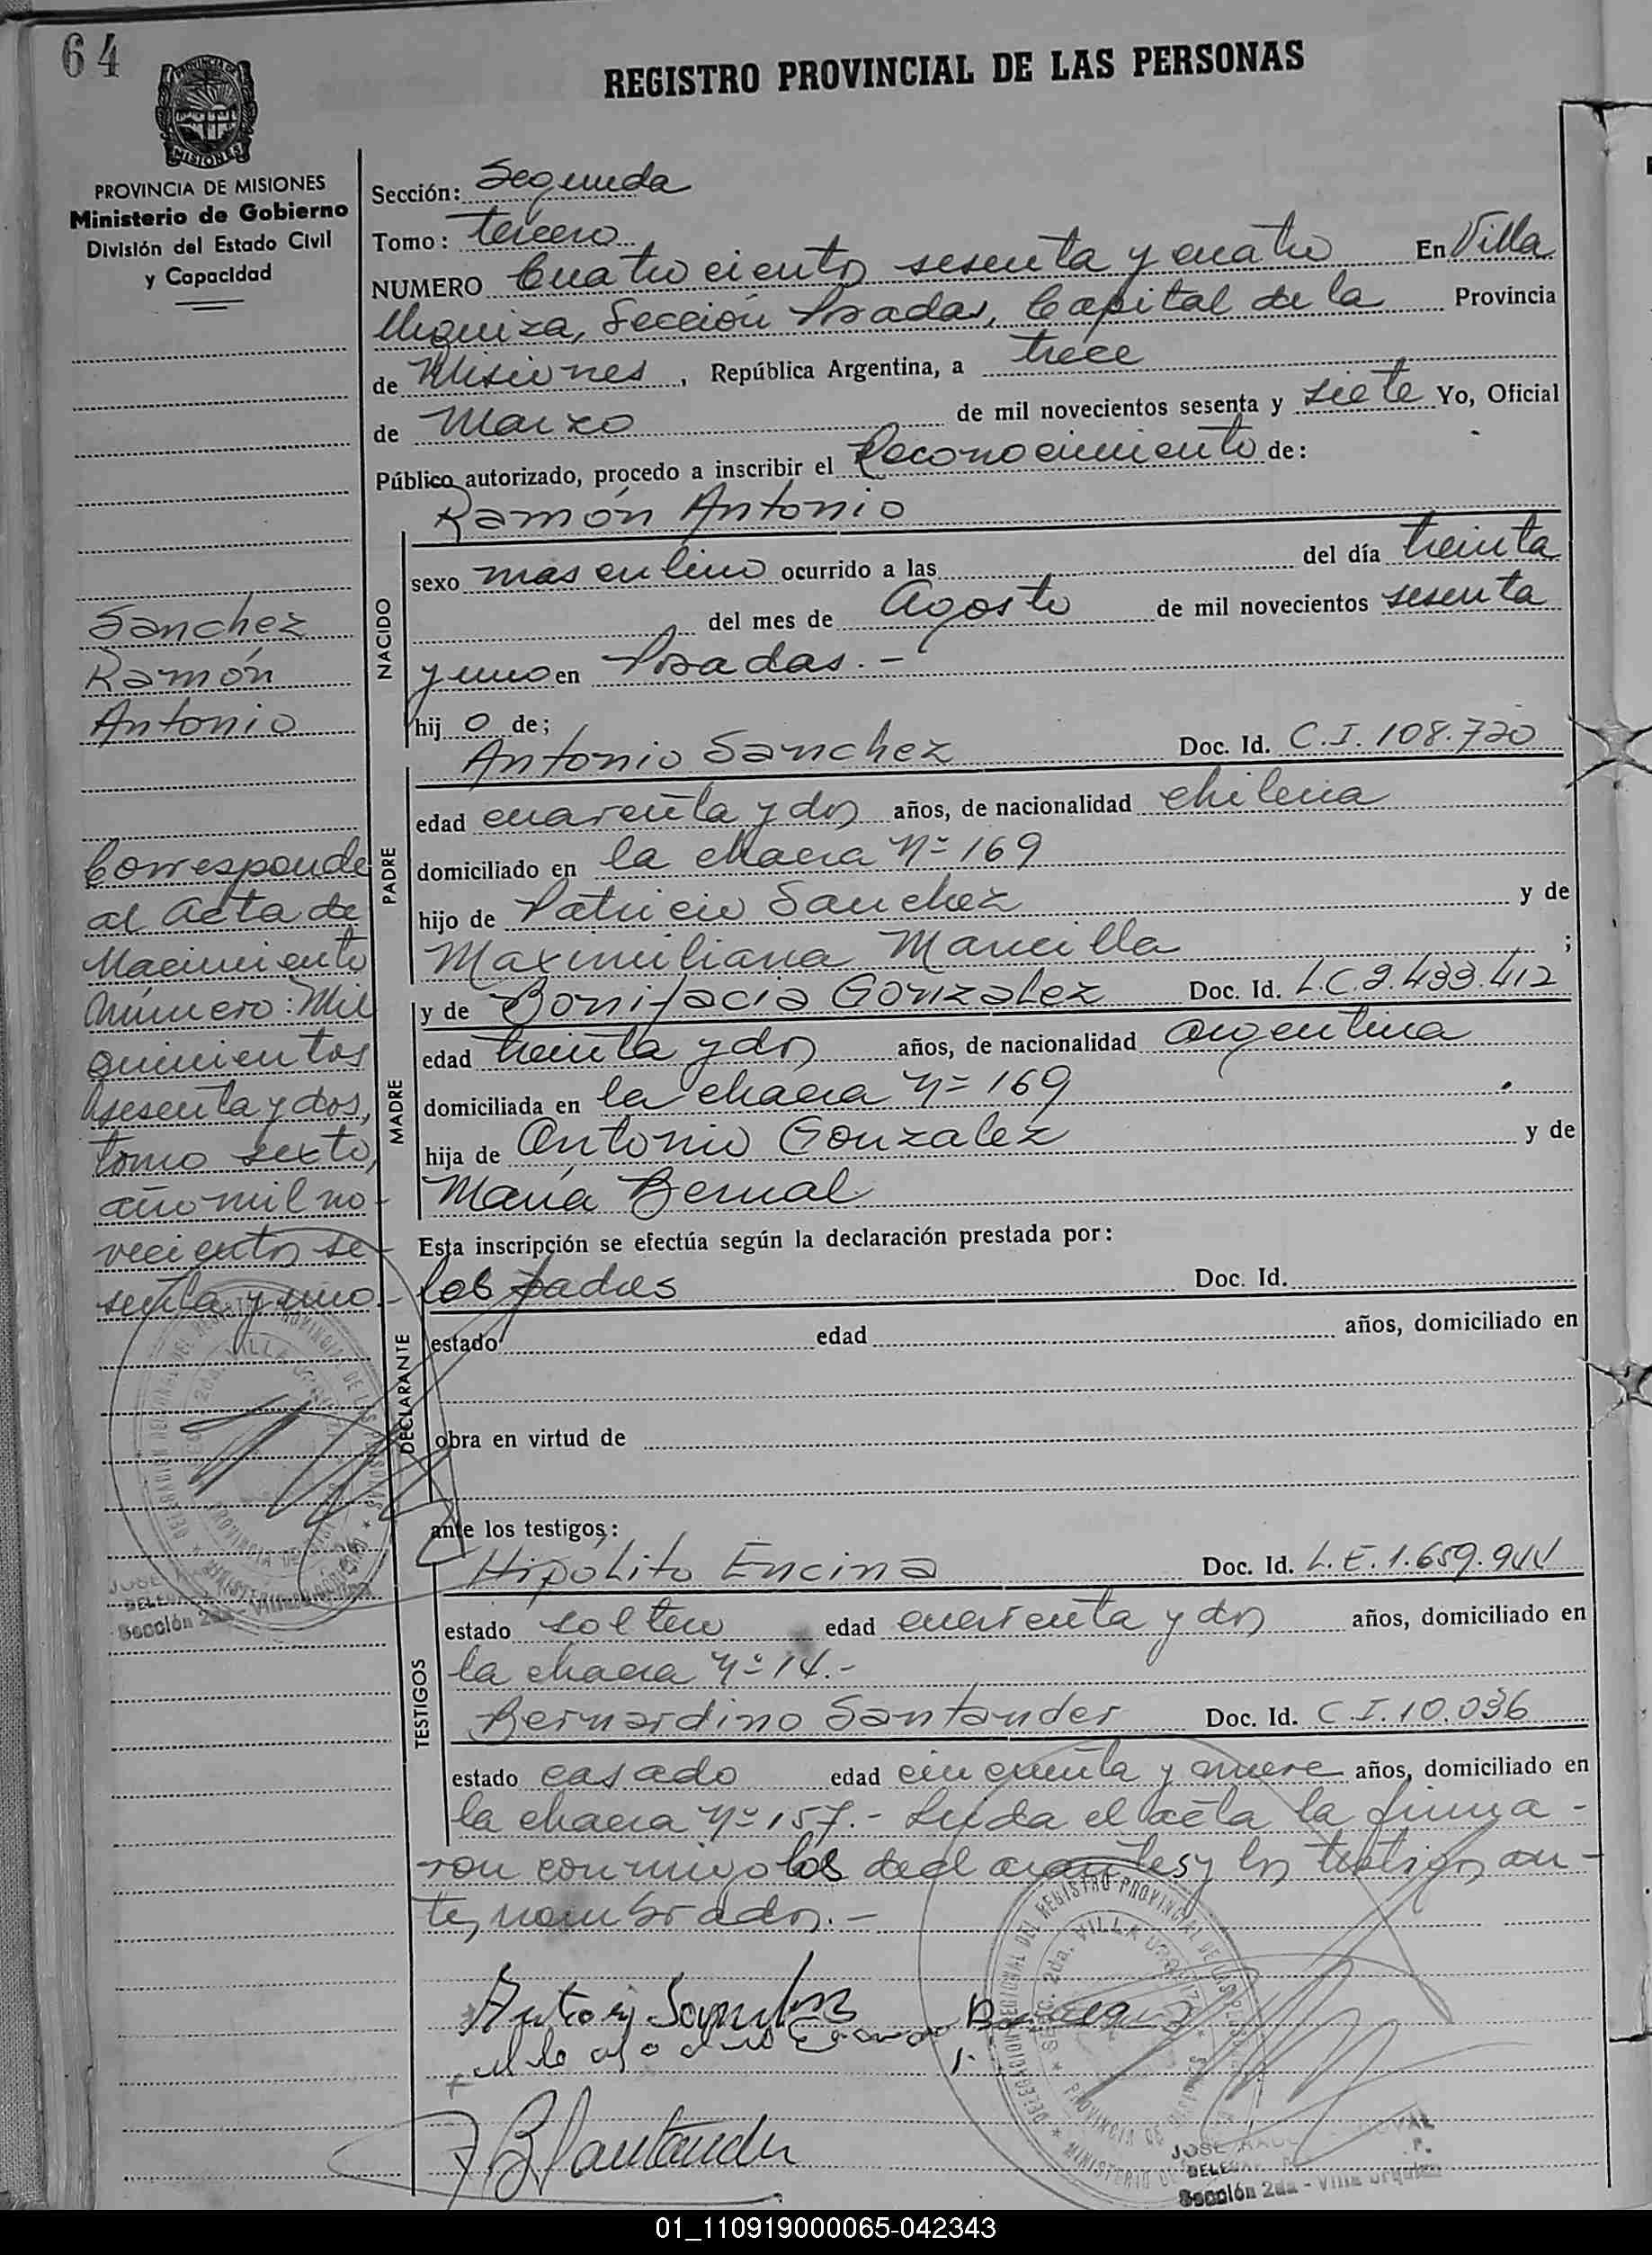 64
REGISTRO PROVINCIAL DE LAS PERSONAS
PROVINCIA DE MISIONES
Ministerio de Gobierno
División del Estado Civil
y Capacidad
Sanchez
Ramón
Antonio
Corresponde
al Acta de
Nacimiento
número: Mil
quinientos
sesenta y dos,
tomo sexto,
año mil no-
vecientos se-
senta y uno.-
Sección: Segunda
Tomo: tercero
NUMERO Cuatrocientos sesenta y cuatro En Villa
Urquiza, Sección Posadas, Capital de la Provincia
de Misiones, República Argentina, a trece
de Marzo de mil novecientos sesenta y siete Yo, Oficial
Público autorizado, procedo a inscribir el Reconocimiento de:
Ramón Antonio
NACIDO
sexo masculino ocurrido a las del día treinta
del mes de Agosto de mil novecientos sesenta
y uno en Posadas.-
hij o de;
PADRE
Antonio Sanchez Doc. Id. C.I. 108.720
edad cuarenta y dos años, de nacionalidad chilena
domiciliado en la chacra Nº 169
hijo de Patricio Sanchez y de
Maximiliana Mancilla ;
MADRE
y de Bonifacia Gonzalez Doc. Id. L.C. 2.433.412
edad treinta y dos años, de nacionalidad argentina
domiciliada en la chacra Nº 169
hija de Antonio Gonzalez y de
María Bernal
Esta inscripción se efectúa según la declaración prestada por:
DECLARANTE
los padres Doc. Id.
estado edad años, domiciliado en
obra en virtud de
ante los testigos:
TESTIGOS
Hipólito Encina Doc. Id. L.E. 1.659.944
estado soltero edad cuarenta y dos años, domiciliado en
la chacra Nº 14.-
Bernardino Santander Doc. Id. C.I. 10.036
estado casado edad cincuenta y nueve años, domiciliado en
la chacra Nº 157.- Leída el acta la firma-
ron conmigo los declarantes y los testigos an-
tes nombrados.-
Antonio Sanchez
B Santander
DELEGACION REGIONAL DEL REGISTRO PROVINCIAL DE LAS PERSONAS
SECC. 2da. VILLA URQUIZA
PROVINCIA DE MISIONES
Sección 2da - Villa Urquiza
01_110919000065-042343